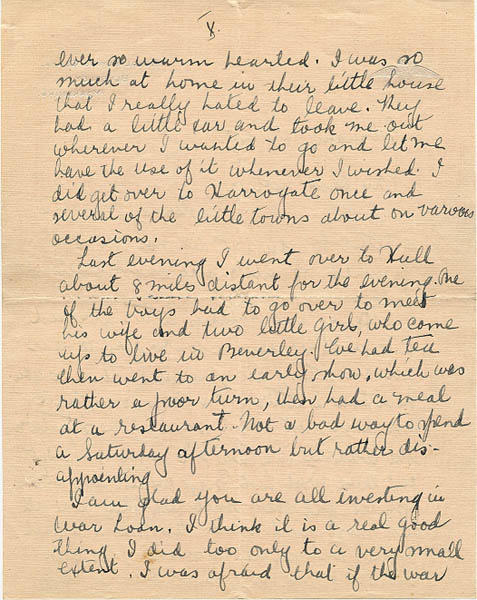 V.
ever so warm hearted. I was so
much at home in their little house
that I really hated to leave. They
had a little car and took me out
wherever I wanted to go and let me
have the use of it whenever I wished. I
did get over to Harrogate once and
several of the little towns about on various
occasions.
Last evening I went over to Hull
about 8 miles distant for the evening. One
of the boys had to go over to meet
his wife and two little girls, who come
up to live in Beverley. We had tea
then went to an early show, which was
rather a poor turn, then had a meal
at a restaurant. Not a bad way to spend
a Saturday afternoon but rather dis-
appointing
I am glad you are all investing in
War Loan. I think it is a real good
thing. I did too only to a very small
extent. I was afraid that if the war